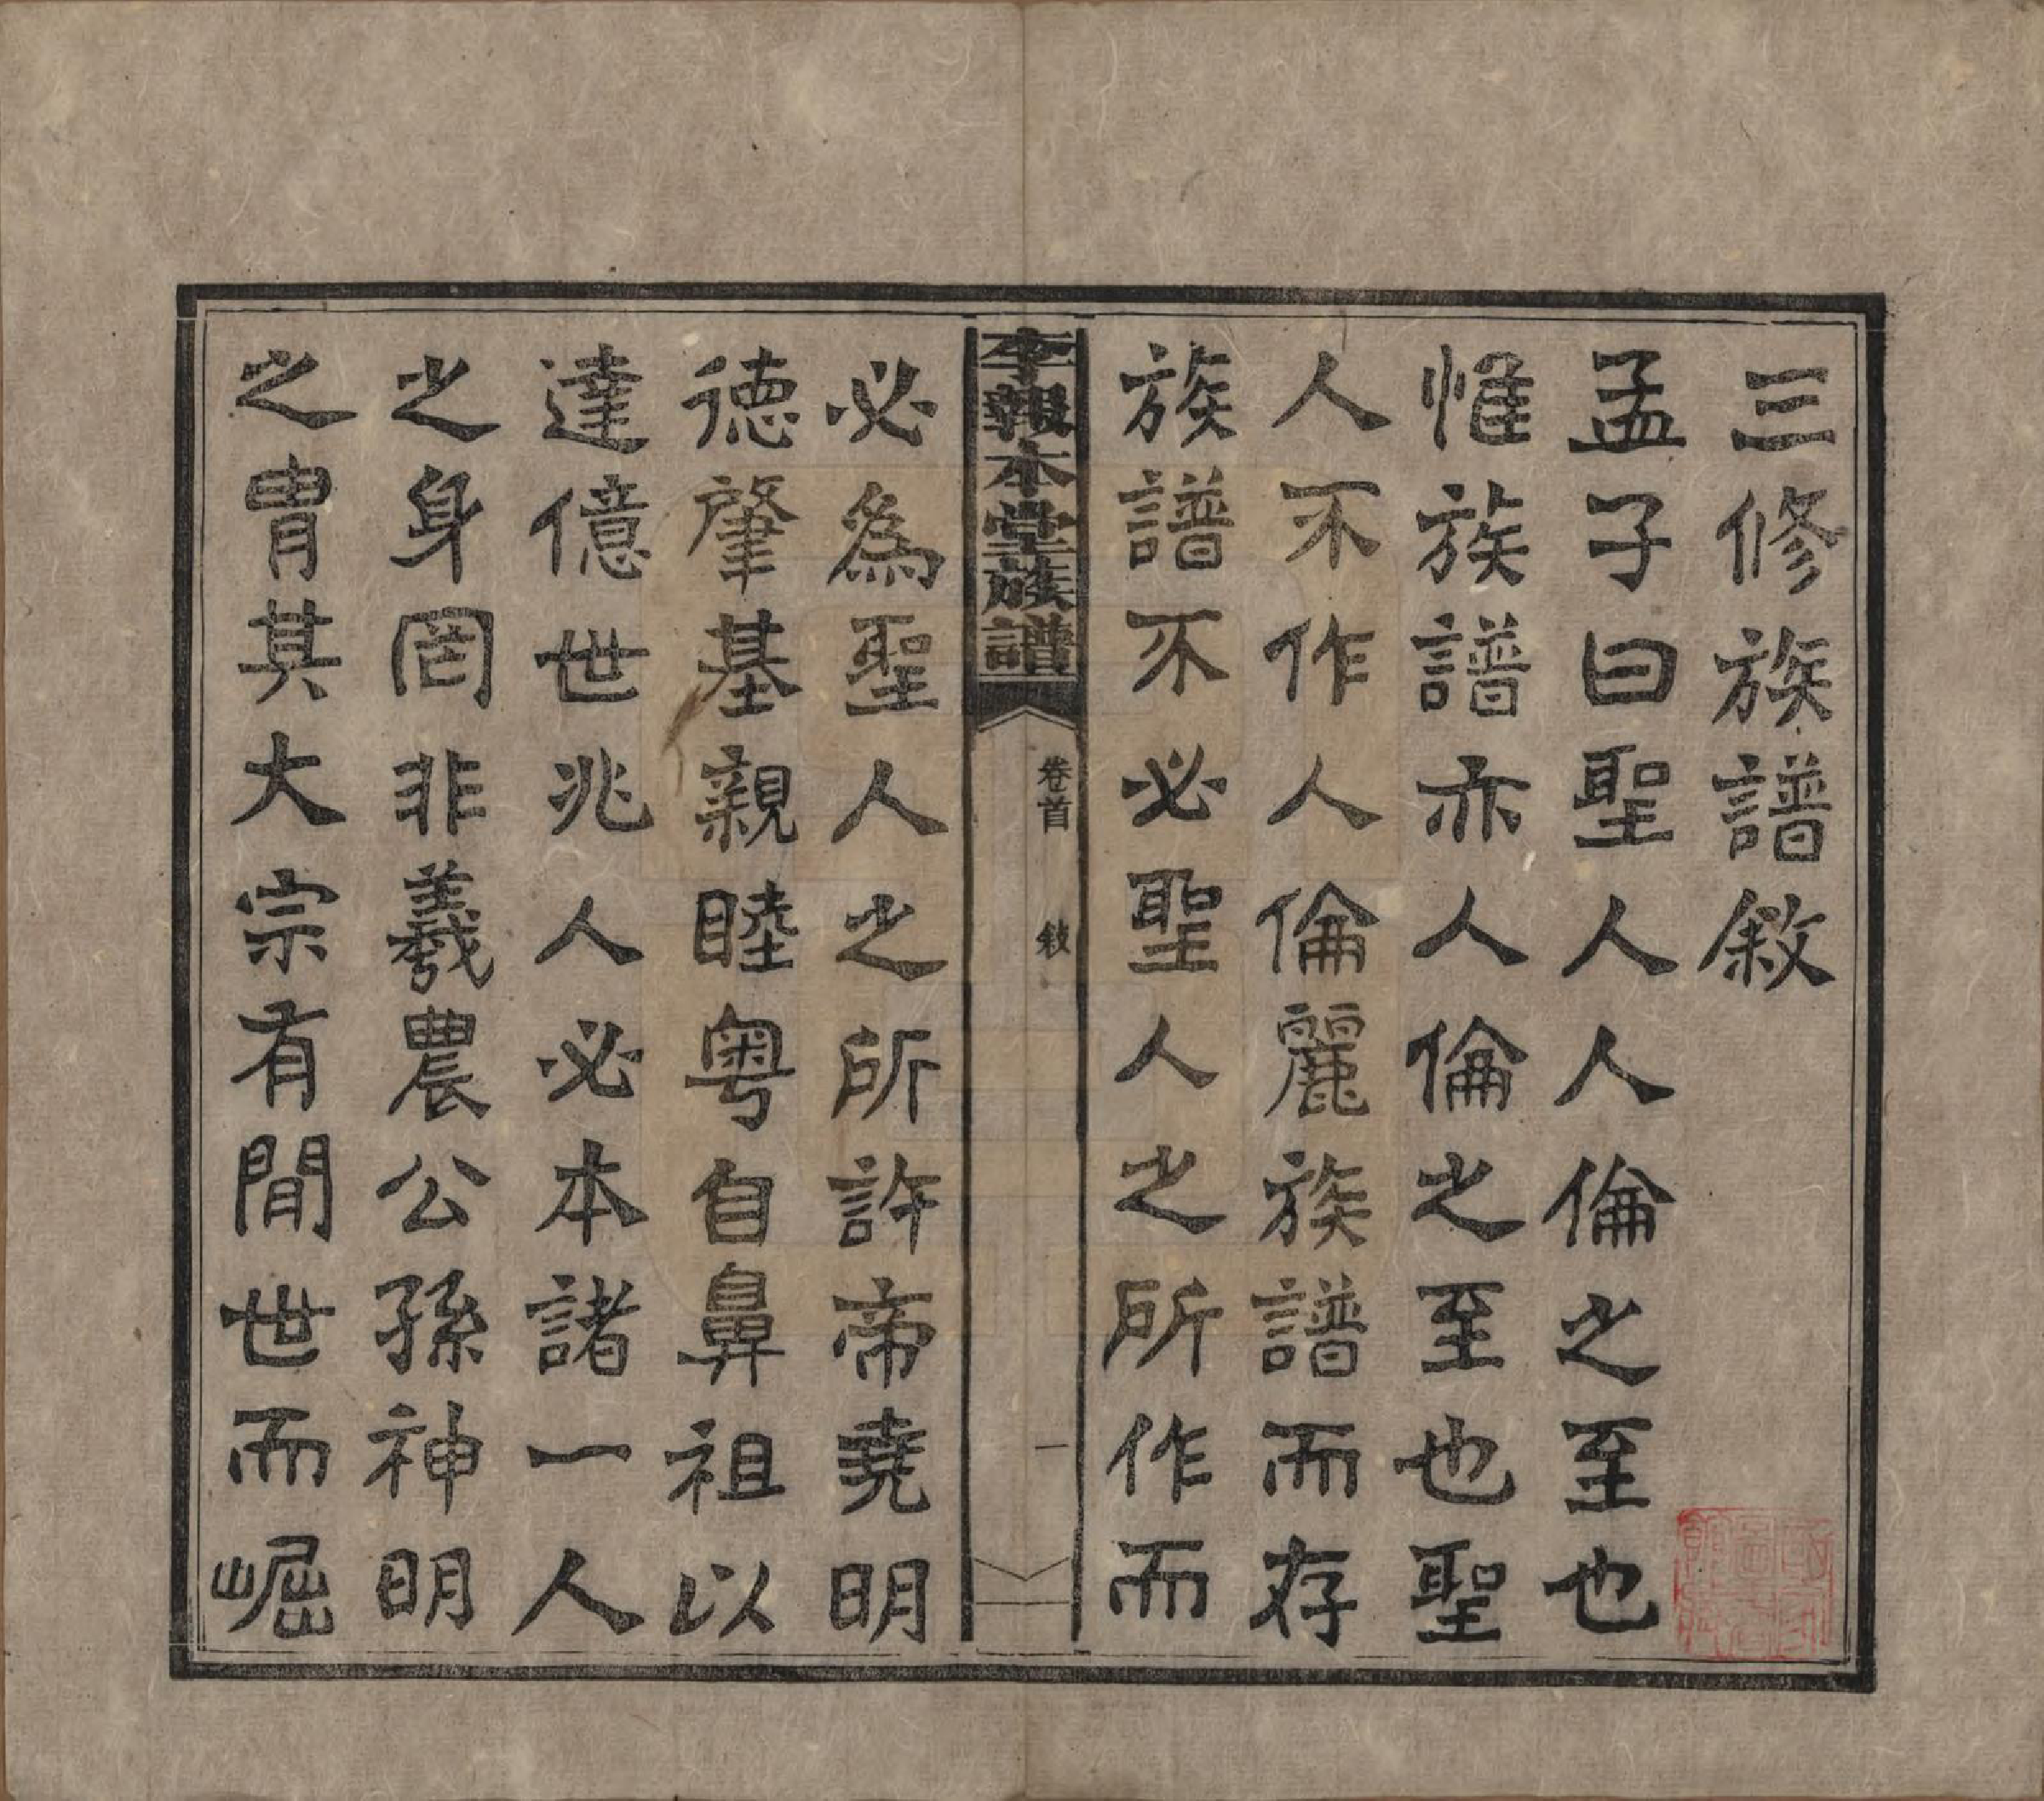 三修族譜敘
孟子曰聖人人倫之至也
惟族譜亦人倫之至也聖
人不作人倫麗族譜而存
族譜不必聖人之所作而
李報本堂族譜
卷首
敘
一
必爲聖人之所許帝堯明
德肇基親睦粵自鼻祖以
達億世兆人必本諸一人
之身罔非羲農公孫神明
之胄其大宗有閒世而崛